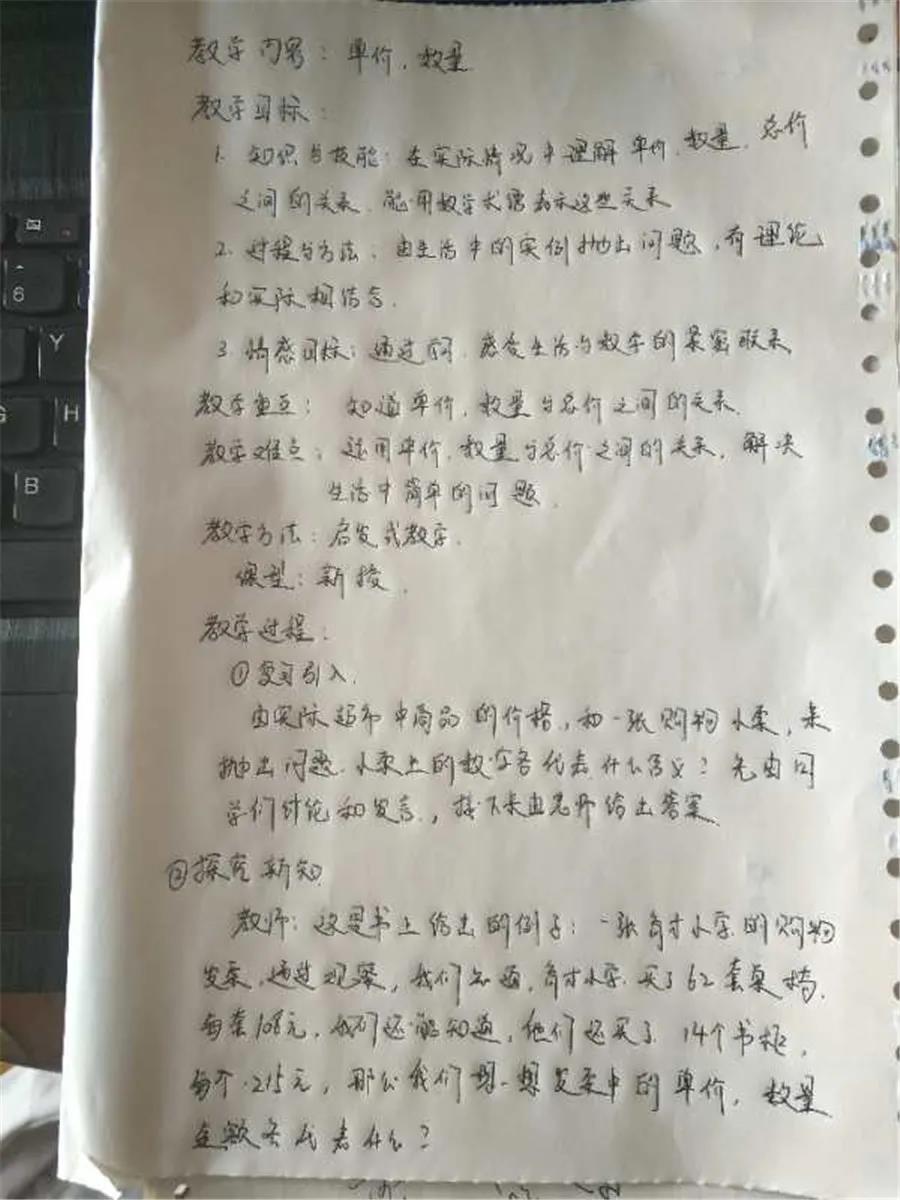 教学内容：单价，数量
教学目标：
1. 知识与技能：在实际情况中理解单价、数量、总价
之间的关系，能用数学术语表示这些关系
2. 过程与方法：由生活中的实例抛出问题，有理论
和实际相结合.
3. 情感目标：通过 感受生活与数学的紧密联系
教学重点： 知道单价，数量与总价之间的关系.
教学难点：运用单价，数量与总价之间的关系，解决
生活中简单的问题.
教学方法：启发式教学.
课型：新授.
教学过程：
①复习引入.
由实际超市中商品的价格，和一张购物小票，来
抛出问题.小票上的数字各代表什么含义？先由同
学们讨论和发言.，接下来由老师给出答案.
②探究新知.
教师：这是书上给出的例子：一张育才小学的购物
发票，通过观察，我们知道，育才小学买了62套桌椅，
每套108元，我们还能知道，他们还买了14个书柜，
每个215元，那么我们想一想发票中的单价，数量
金额各代表什么？
6
Y
G
H
B